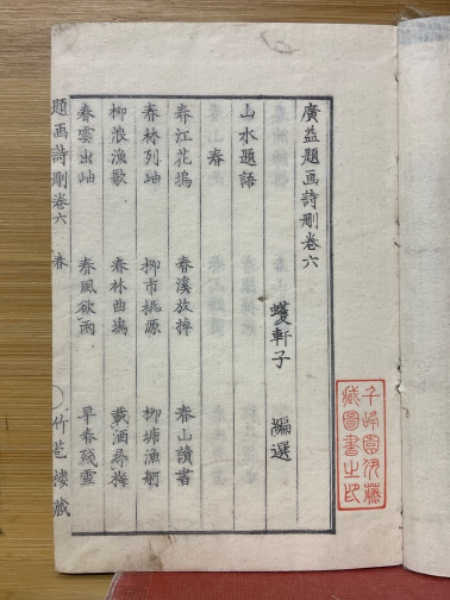 廣益題画詩刪卷六
蠖軒子 編選
山水題語
春
春江花塢 春溪放棹 春山讀書
春林列岫 柳市桃源 柳塘漁舸
柳浪漁歌 春林曲塢 載酒尋梅
春雲出岫 春風欲雨 早春殘雪
題画詩刪卷六 春 竹苞樓藏
千峰園伊藤
藏圖書之印